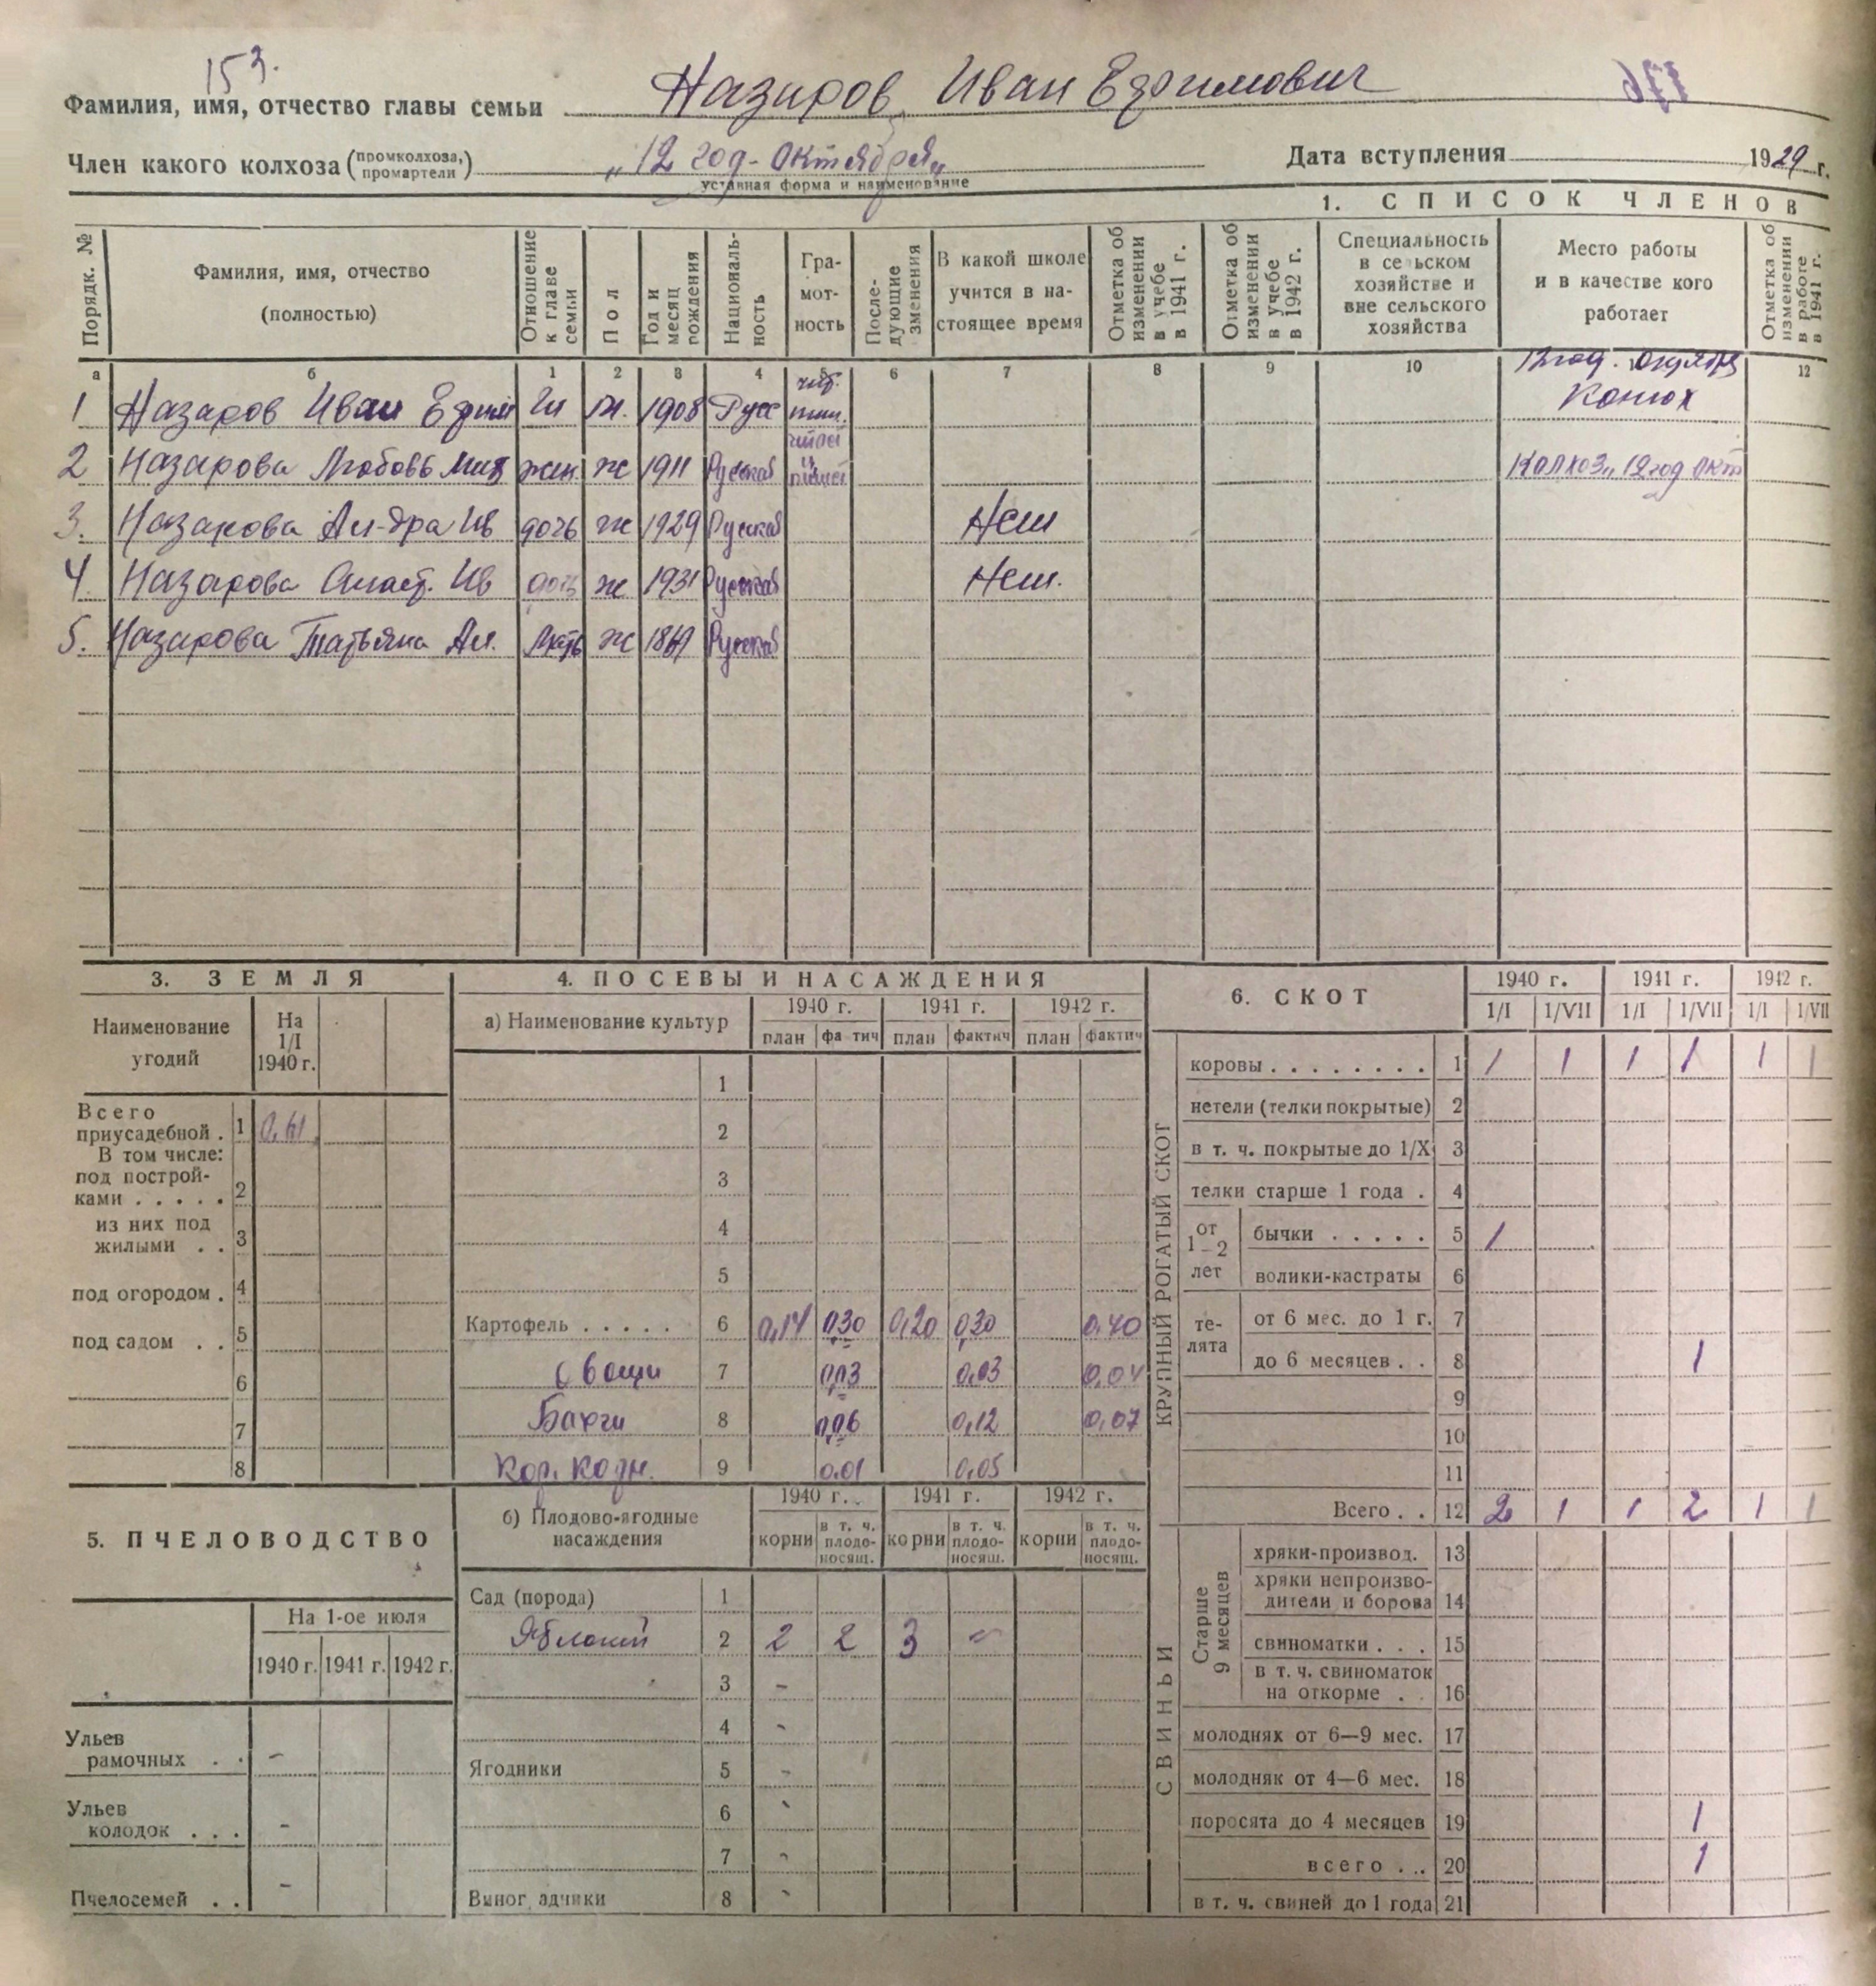 153.
Фамилия, имя, отчество главы семьи Назаров Иван Ефимович
176
Член какого колхоза (промколхоза, промартели) „12 год-Октября„ Дата вступления 1929 г.
уставная форма и наименование
1. СПИСОК ЧЛЕНОВ
Порядк. № Фамилия, имя, отчество (полностью) Отношение к главе семьи Пол Год и месяц рождения Националь-ность Гра-мот-ность После-дующие зменения В какой школе учится в на-стоящее время Отметка об изменении в учебе в 1941 г. Отметка об изменении в учебе в 1942 г. Специальность в сельском хозяйстве и вне сельского хозяйства Место работы и в качестве кого работает Отметка об изменении в работе в 1941 г.
а б 1 2 3 4 5 6 7 8 9 10 12
1 Назаров Иван Ефим Гл м. 1908 Русс Конюх
2 Назарова Любовь Мих жен. ж 1911 Русская читает и пишет Колхоз „12 год Окт
3. Назарова Ал-дра Ив дочь ж 1929 Русская Нет
4. Назарова Анаст. Ив дочь ж 1931 Русская Нет.
5. Назарова Татьяна Ал. Мать ж Русская
3. ЗЕМЛЯ
Наименование угодий На 1/I 1940 г.
Всего приусадебной . 1 0,61
В том числе:
под построй-ками . . . . . 2
из них под жилыми . . 3
под огородом . 4
под садом . . 5
6
7
8
4. ПОСЕВЫ И НАСАЖДЕНИЯ
а) Наименование культур 1940 г. 1941 г. 1942 г.
план фа тич план фактич план фактич
1
2
3
4
5
Картофель . . . . . 6 0,14 0,30 0,20 0,30 0,40
Овощи 7 0,03 0,03 0,04
Бахчи 8 0,06 0,12 0,07
Кор. 9 0,01 0,05
5. ПЧЕЛОВОДСТВО
На 1-ое июля
1940 г. 1941 г. 1942 г.
Ульев рамочных . . -
Ульев колодок . . . -
Пчелосемей . . -
б) Плодово-ягодные насаждения 1940 г. 1941 г. 1942 г.
корни в т. ч. плодо-носящ. корни в т. ч. плодо-носящ. корни в т. ч. плодо-носящ.
Сад (порода) 1
2 2 2 3 -
3 -
4 -
Ягодники 5 -
6 -
7 -
Виног адники 8 -
6. СКОТ 1940 г. 1941 г. 1942 г.
1/I 1/VII 1/I 1/VII 1/I 1/VII
КРУПНЫЙ РОГАТЫЙ СКОТ
коровы . . . . . . . . 1 1 1 1 1 1 1
нетели (телки покрытые) 2
в т. ч. покрытые до 1/X 3
телки старше 1 года . 4
от 1–2 лет бычки . . . . . 5 1
волики-кастраты 6
те-лята от 6 мес. до 1 г. 7
до 6 месяцев . . 8 1
9
10
11
Всего . . 12 2 1 1 2 1 1
СВИНЬИ
Старше 9 месяцев хряки-производ. 13
хряки непроизво-дители и борова 14
свиноматки . . . 15
в т. ч. свиноматок на откорме . . 16
молодняк от 6—9 мес. 17
молодняк от 4—6 мес. 18
поросята до 4 месяцев 19 1
всего . . . 20 1
в т. ч. свиней до 1 года 21